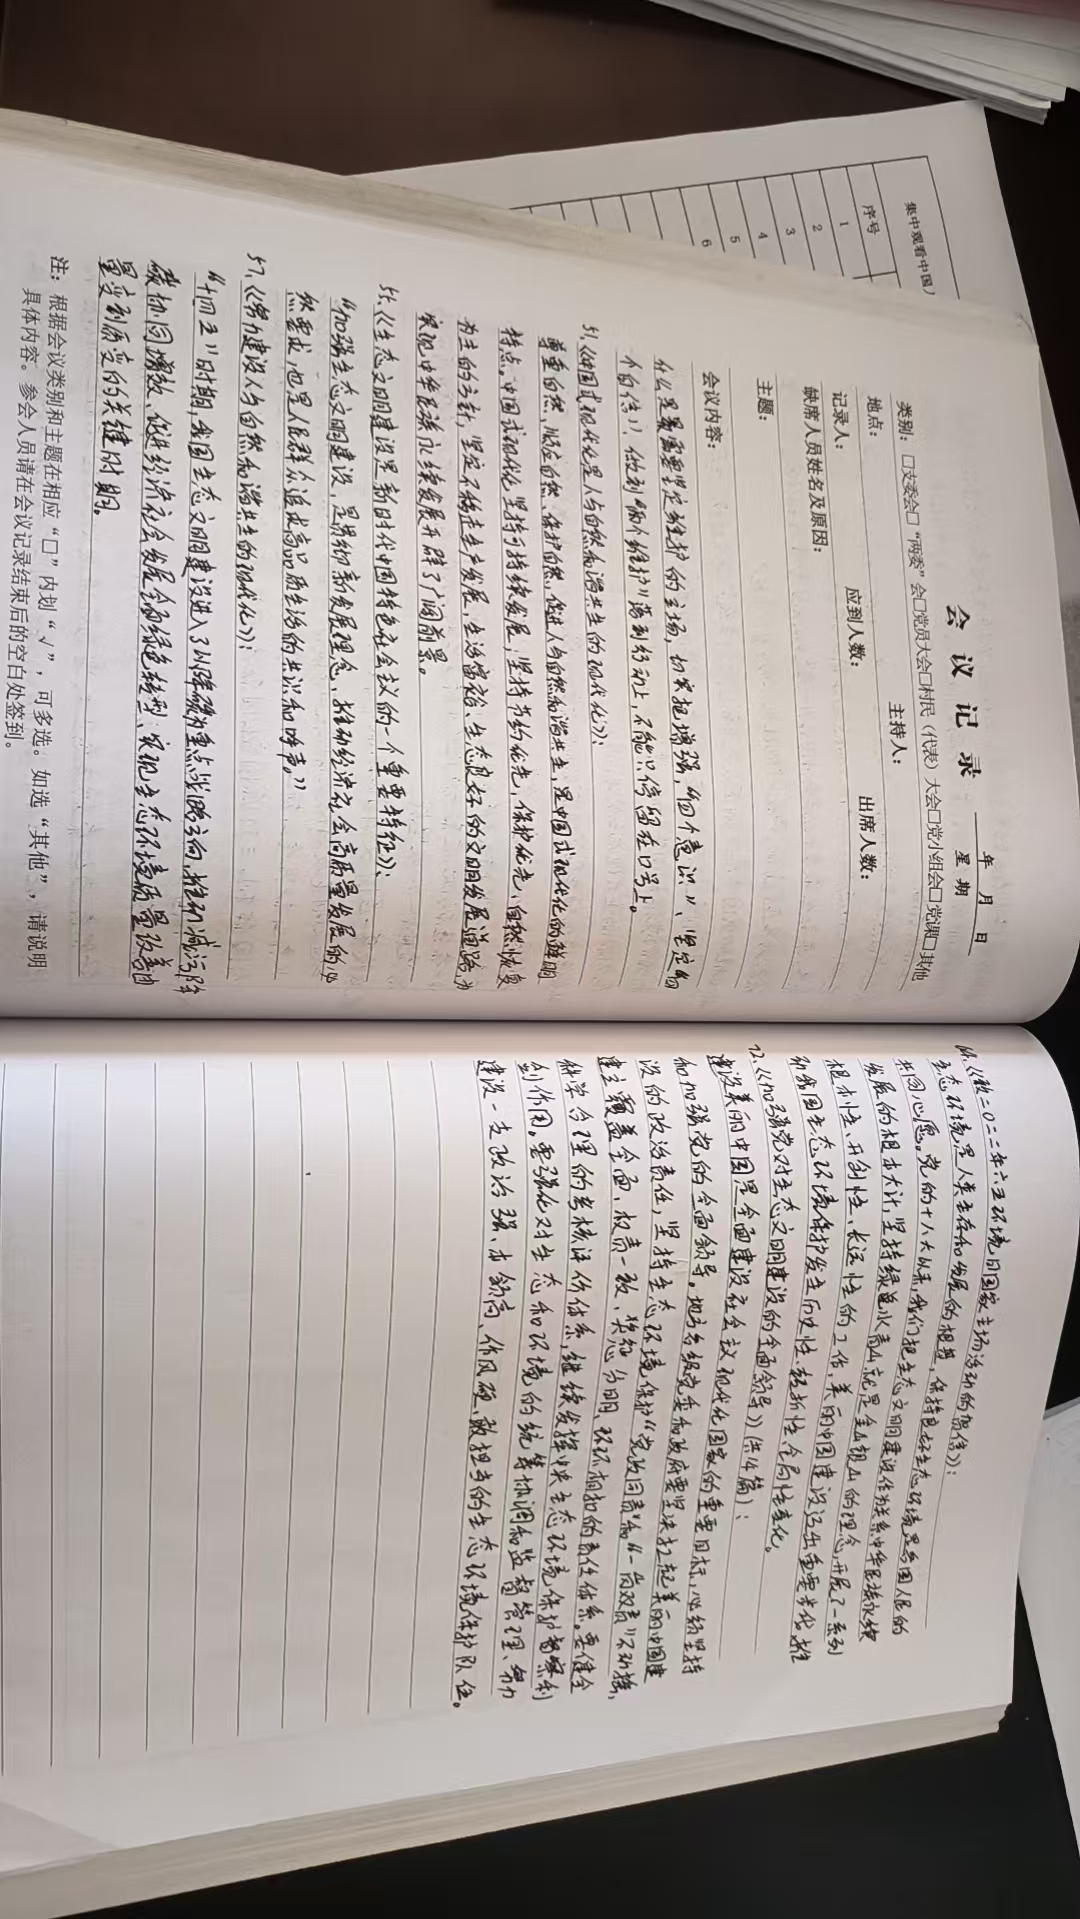 集中观看中国
序号
1
2
3
4
5
6
会议记录
年 月 日
星期
类别：□支委会□“两委”会□党员大会□村民（代表）大会□党小组会□党课□其他
地点： 主持人：
记录人： 应到人数： 出席人数：
缺席人员姓名及原因：
主题：
会议内容：
什么是最需要坚定维护的立场，切实把增强“四个意识”、坚定“四
个自信”，做到“两个维护”落到行动上，不能只停留在口号上。
51.《中国式现代化是人与自然和谐共生的现代化》：
尊重自然、顺应自然、保护自然，促进人与自然和谐共生，是中国式现代化的鲜明
特点。中国式现代化坚持可持续发展，坚持节约优先，保护优先、自然恢复
为主的方针，坚定不移走生产发展、生活富裕、生态良好的文明发展道路，为
实现中华民族永续发展开辟了广阔前景。
《生态文明建设是新时代中国特色社会主义的一个重要特征》：
“加强生态文明建设，是贯彻新发展理念、推动经济社会高质量发展的必
然要求，也是人民群众追求高品质生活的共识和呼声。”
57.《努力建设人与自然和谐共生的现代化》：
“十四五”时期，我国生态文明建设进入了以降碳为重点战略方向，推动减污降
碳协同增效、促进经济社会发展全面绿色转型、实现生态环境质量改善由
量变到质变的关键时期。
注：根据会议类别和主题在相应“□”内划“√”，可多选。如选“其他”，请说明
具体内容。参会人员请在会议记录结束后的空白处签到。
《致二〇二二年六五环境日国家主场活动的贺信》：
生态环境是人类生存和发展的根基，保持良好生态环境是各国人民的
共同心愿。党的十八大以来，我们把生态文明建设作为关系中华民族永续
发展的根本大计，坚持绿水青山就是金山银山的理念，开展了一系列
根本性、开创性、长远性的工作，美丽中国建设迈出重要步伐，推
动我国生态环境保护发生历史性、转折性、全局性变化。
72.《加强党对生态文明建设的全面领导》（共14篇）：
建设美丽中国是全面建设社会主义现代化国家的重要目标，必须坚持
和加强党的全面领导。地方各级党委和政府要坚决扛起美丽中国建
设的政治责任，坚持生态环境保护“党政同责”和“一岗双责”不动摇，
建立覆盖全面、权责一致、奖惩分明、环环相扣的责任体系。要健全
科学合理的考核评价体系，继续发挥中央生态环境保护督察利
剑作用。要强化对生态和环境的统筹协调和监督管理、努力
建设一支政治强、本领高、作风硬、敢担当的生态环境保护队伍。